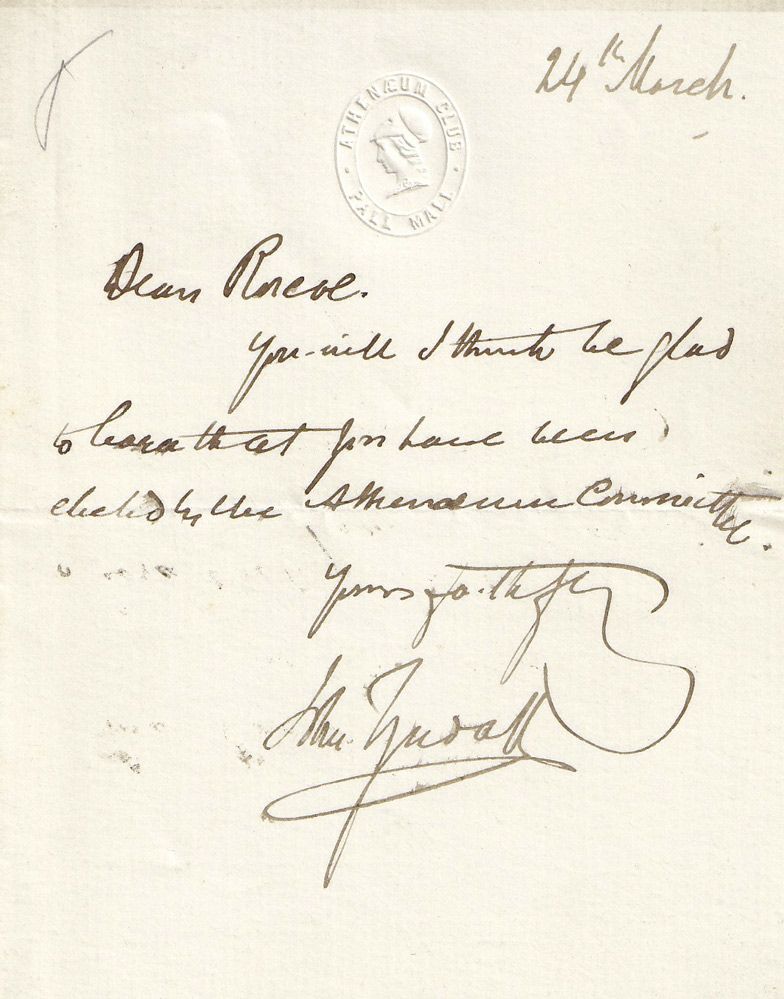 24th March.
ATHENÆUM CLUB
PALL MALL
Dear Roscoe.
You will I think be glad
to learn that you have been
elected by the Athenaeum Committee.
Yours faithfully
John Tyndall